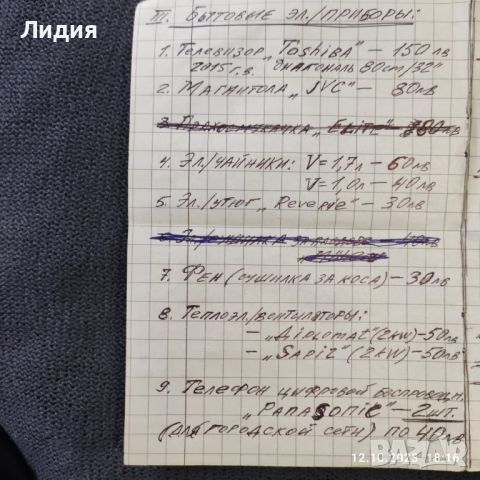 Лидия
III. Бытовые эл./приборы:
1. Телевизор „Toshiba" – 150 лв
2015 г.в. диагональ 80cm/32"
2. Магнитола „JVC" – 80лв
3. „Elite" 780лв
4. Эл./чайники: V=1,7л – 60лв
V=1,0л – 40лв
5. Эл./утюг „Reverie" – 30лв
6. Эл./сушилка за плодове – 40лв
7. Фен (сушилка за коса) – 30лв
8. Теплоэл./вентиляторы:
– „Diplomat" (2kW) – 50лв
– „Sapir" (2kW) – 50лв
9. Телефон цифровой беспроводн.
„Panasonic" – 2шт.
(для городской сети) по 40лв
BAZAR
12.10.2023 18:16